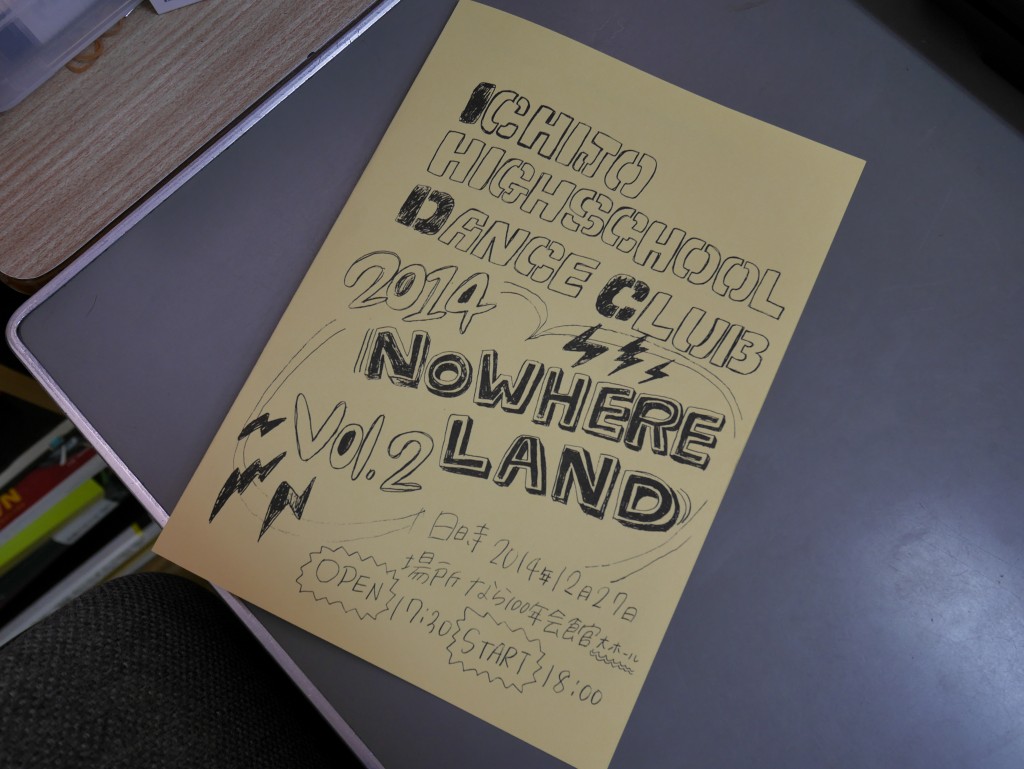 ICHIJO
HIGHSCHOOL
DANCE CLUB
2014
NOWHERE
Vol.2 LAND
日時 2014年12月27日
場所 なら100年会館大ホール
OPEN 17:30
START 18:00